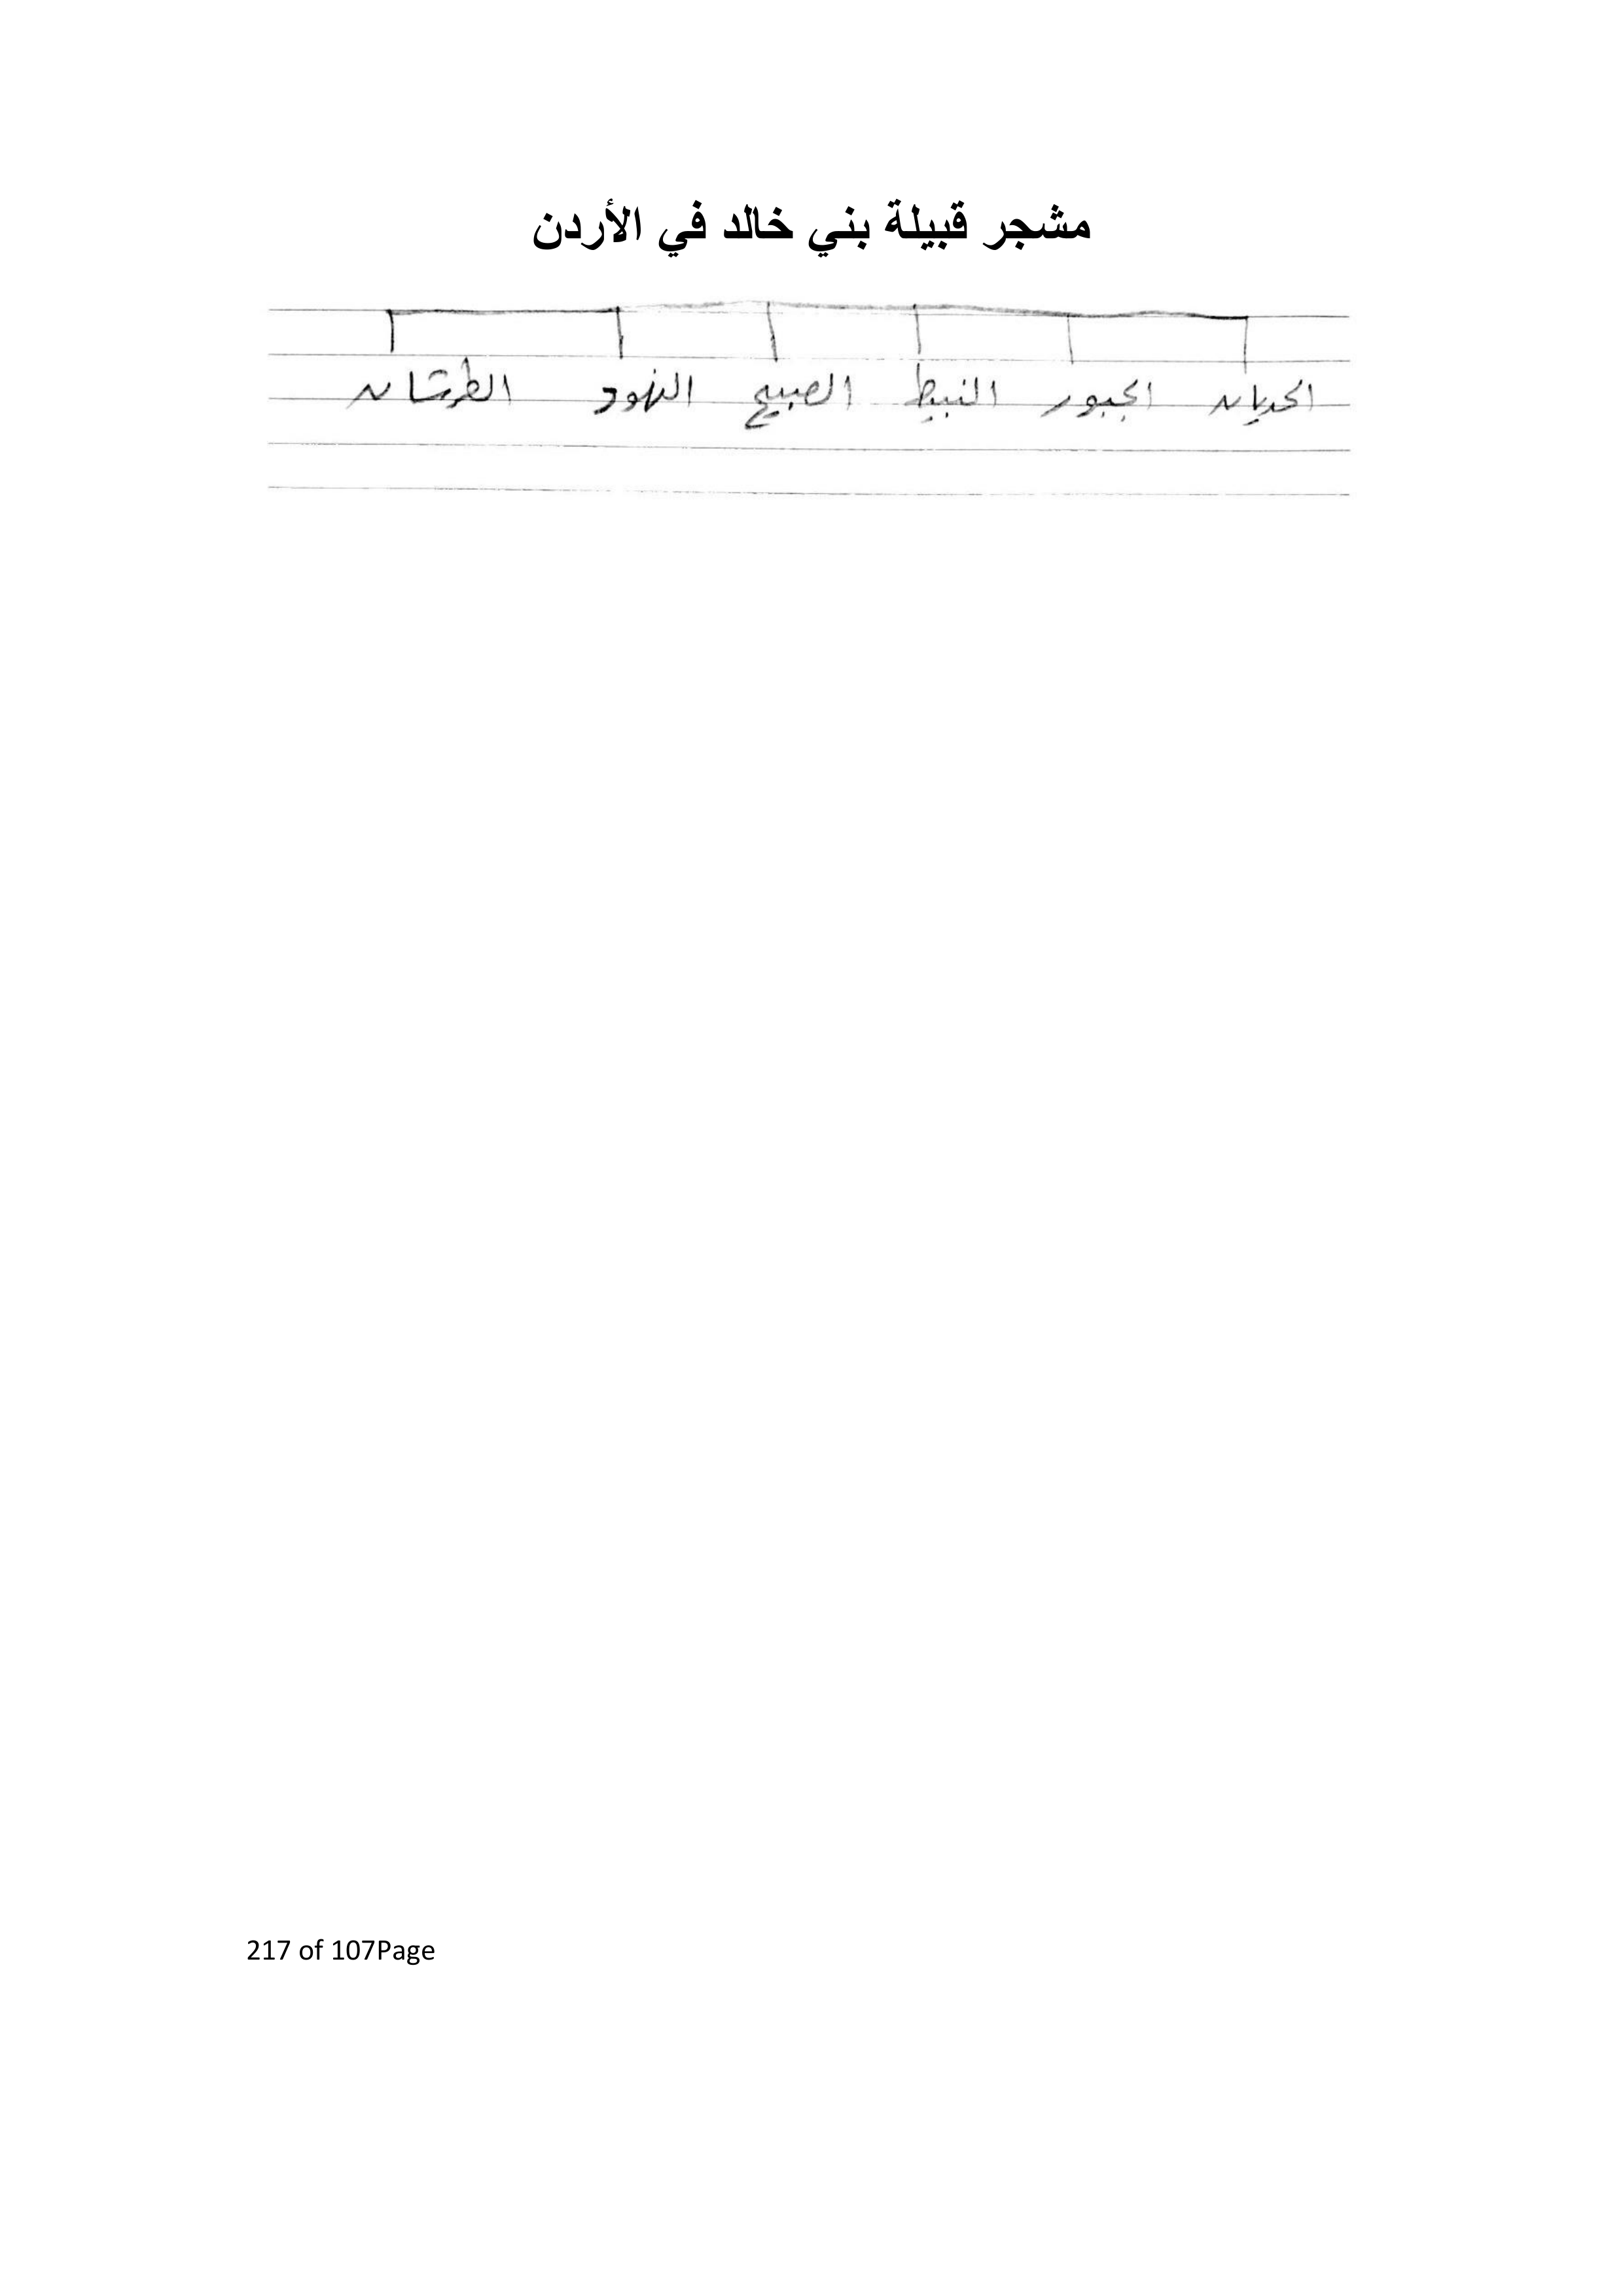 مشجر قبيلة بني خالد في الأردن
الحديان الجبور النبيط الصبيح النهود الطرشان
217 of 107Page